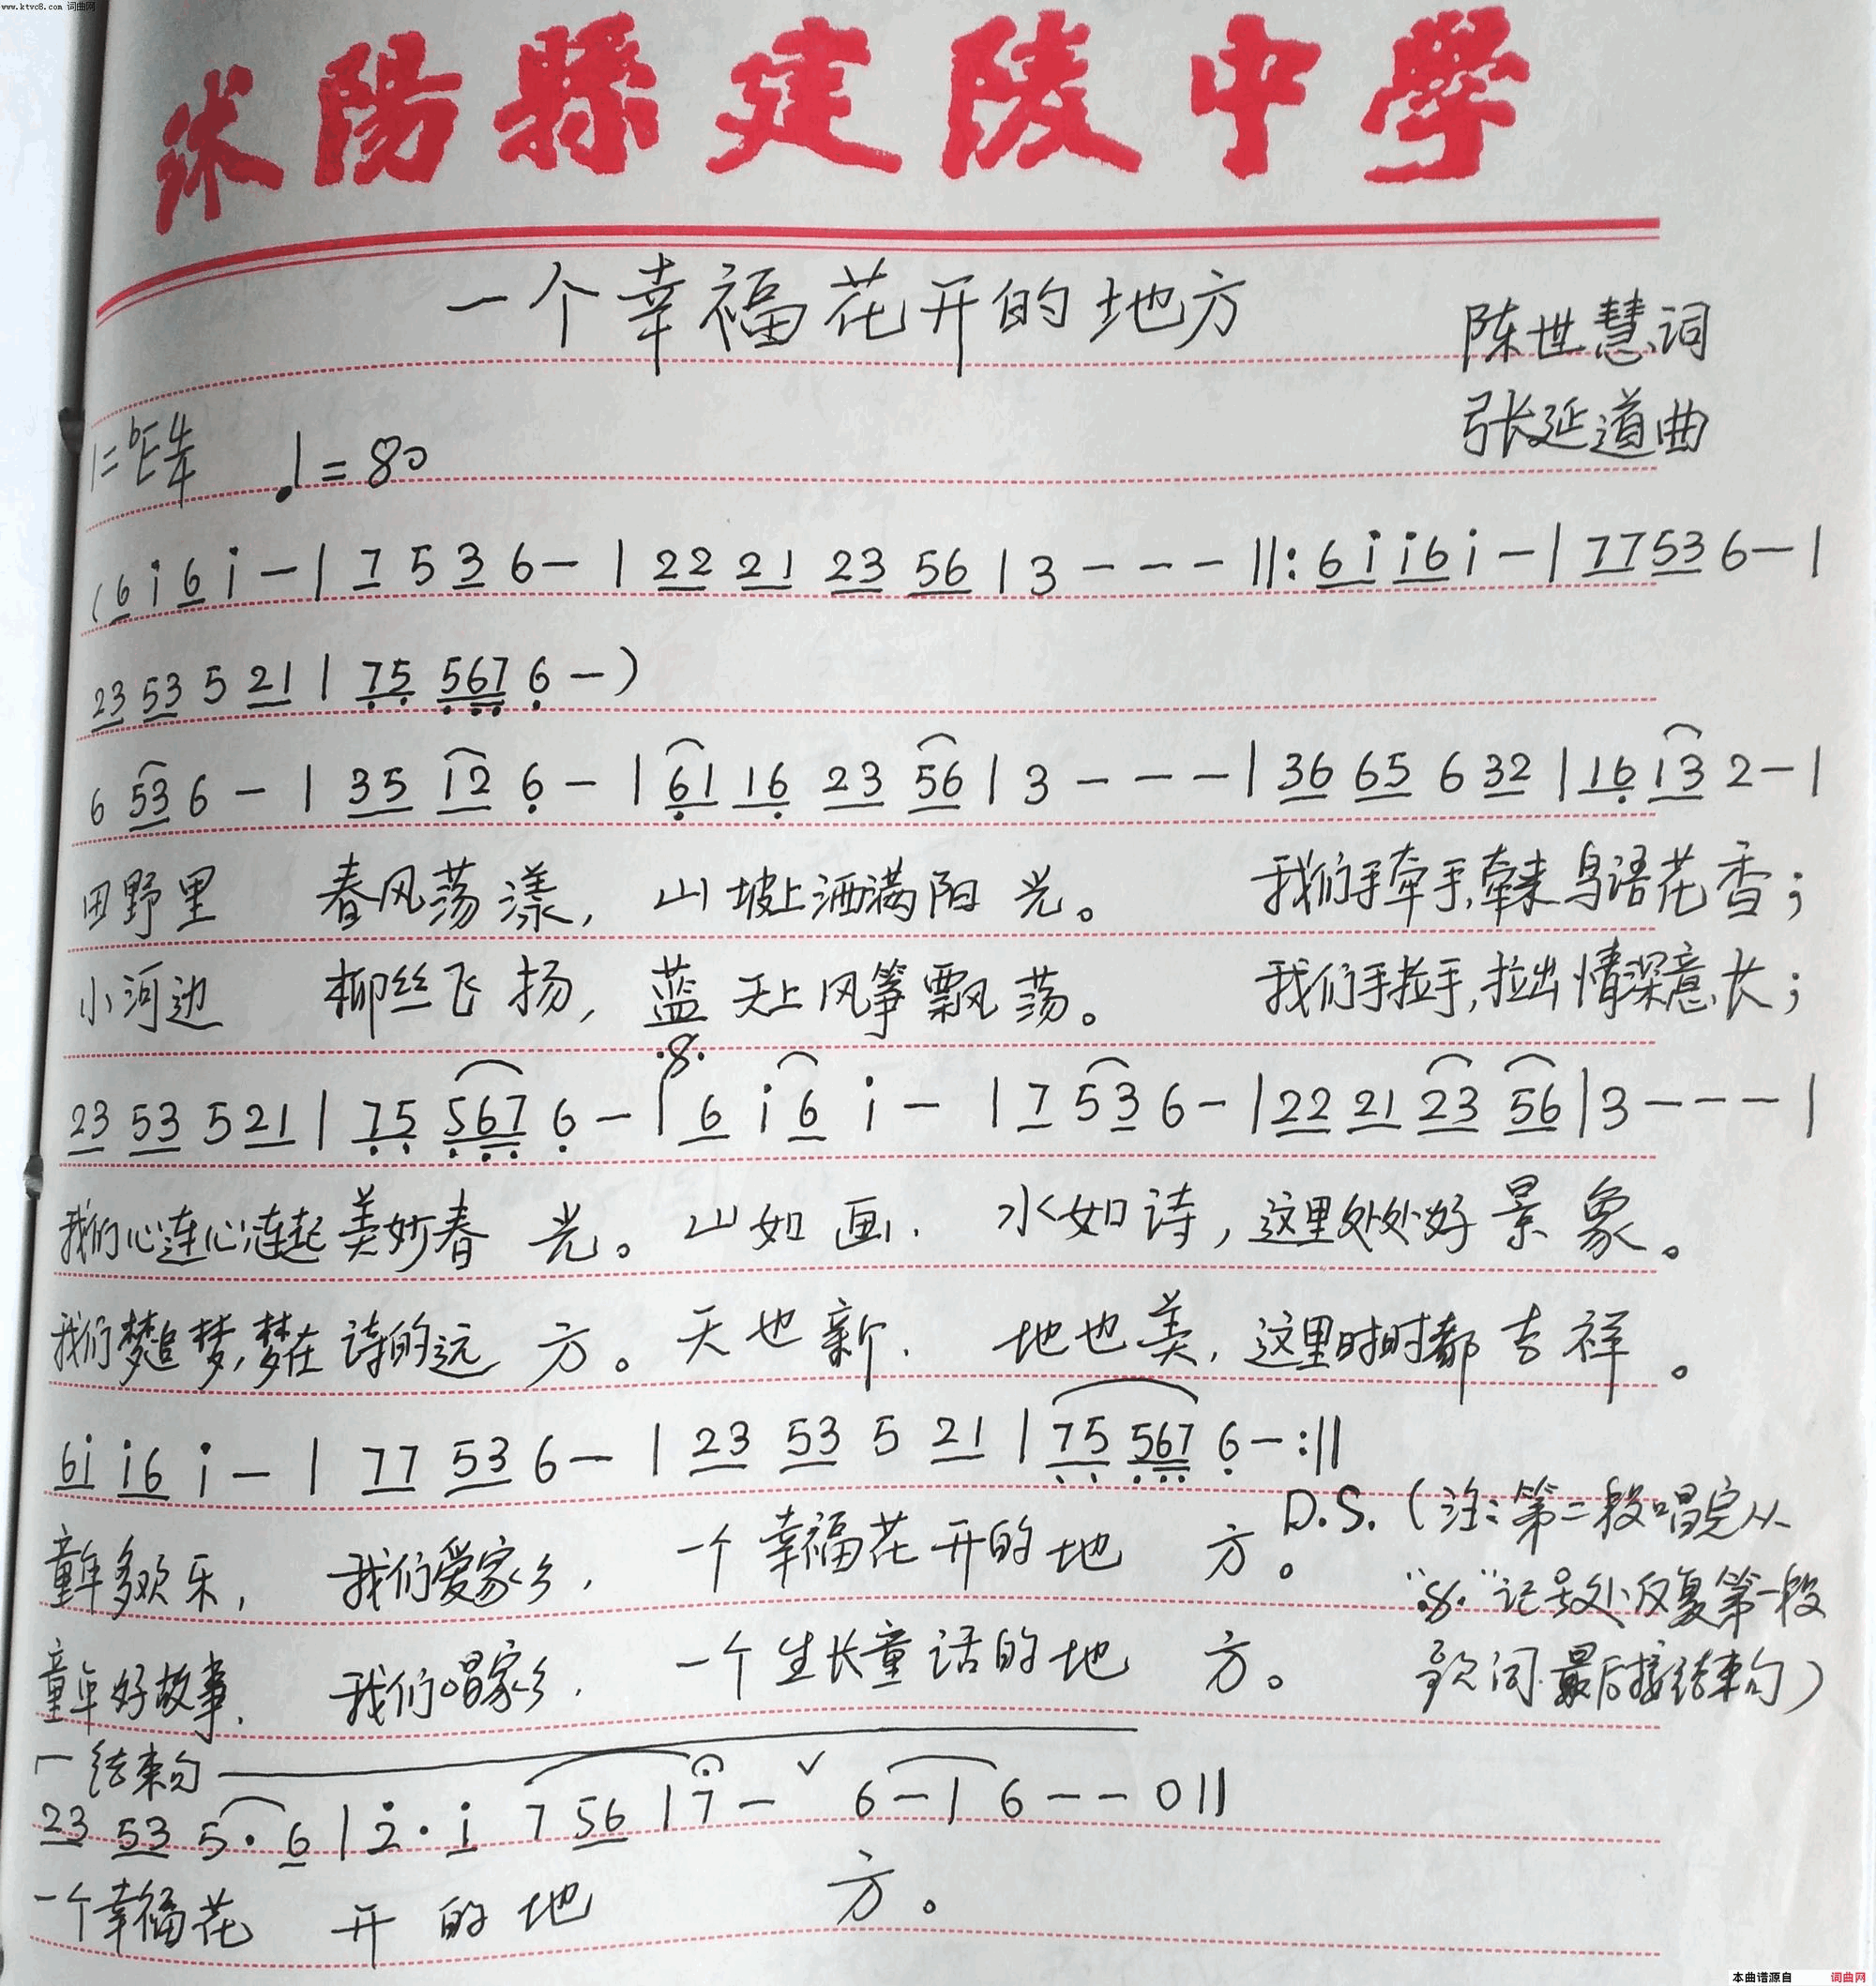 www.ktvc8.com 词曲网
沭陽縣建陵中學
一个幸福花开的地方
陈世慧词
1=ᵇE 4/4 ♩=80
张延道曲
(6 i 6 i — | 7 5 3 6 — | 22 21 23 56 | 3 - - - ||: 6i i6 i — | 77 53 6 — |
23 53 5 21 | 75 567 6 — )
6 53 6 — | 35 12 6 — | 61 16 23 56 | 3 - - - | 36 65 6 32 | 16 13 2 — |
田野里 春风荡漾, 山坡上洒满阳光。 我们手牵手,牵来鸟语花香;
小河边 柳丝飞扬, 蓝天上风筝飘荡。 我们手拉手,拉出情深意长;
𝄋
23 53 5 21 | 75 567 6 — | 6 i 6 i — | 7 53 6 — | 22 21 23 56 | 3 - - - |
我们心连心,连起美妙春光。 山如画. 水如诗, 这里处处好景象。
我们梦追梦,梦在诗的远方。 天也新. 地也美, 这里时时都吉祥。
6i i6 i — | 77 53 6 — | 23 53 5 21 | 75 567 6 — :||
童年多欢乐, 我们爱家乡, 一个幸福花开的地方。 D.S. (注:第二段唱完从
"𝄋"记号处反复第一段
童年好故事. 我们唱家乡. 一个生长童话的地方。 歌词.最后接结束句)
结束句
23 53 5· 6 | 2· i 7 56 | 7 — ∨ 6 — | 6 — — 0 ||
一个幸福花 开的地 方。
本曲谱源自 词曲网